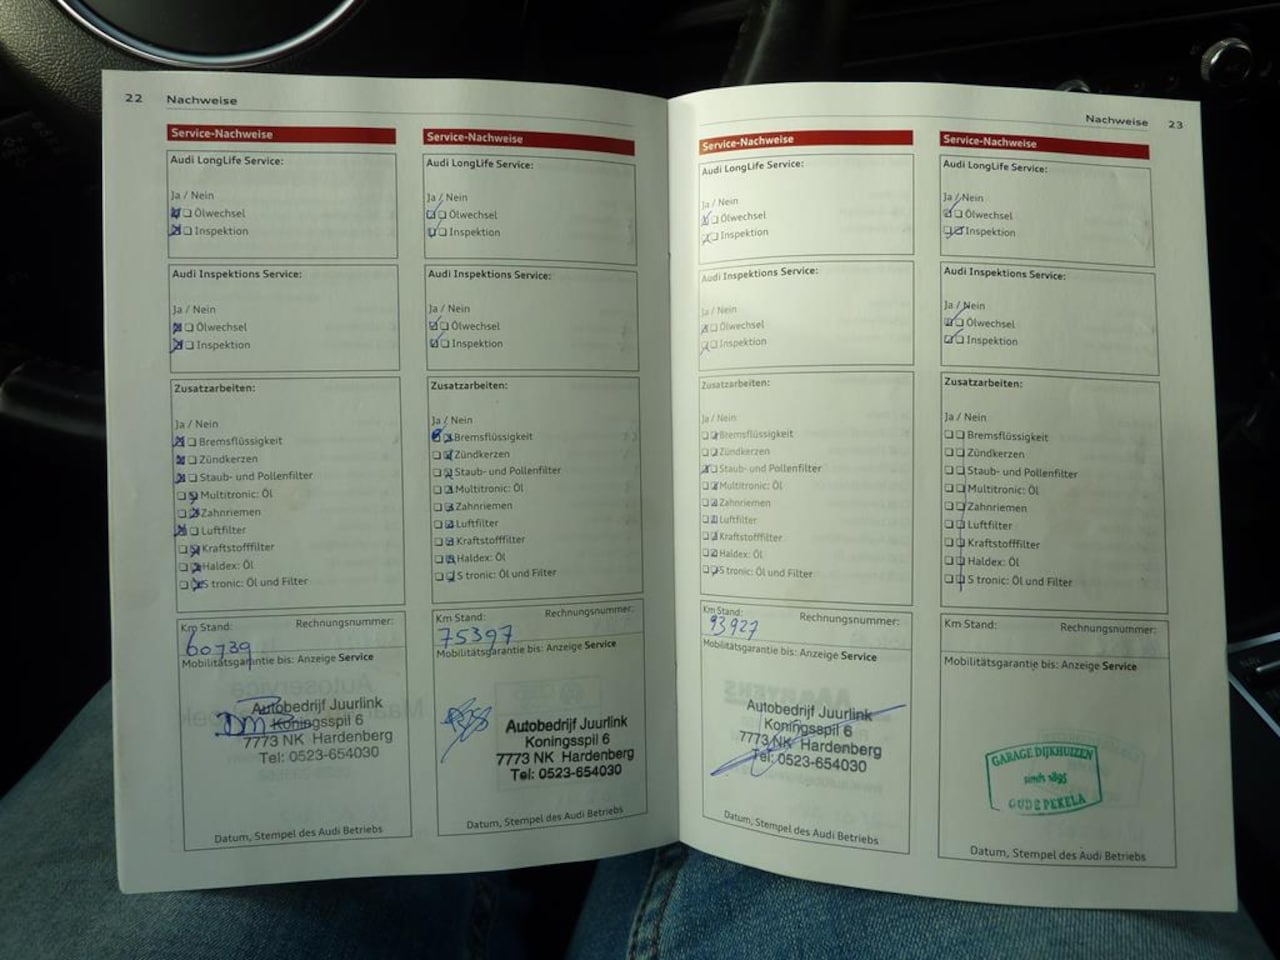 22 Nachweise
Service-Nachweise
Audi LongLife Service:
Ja / Nein
Ölwechsel
Inspektion
Audi Inspektions Service:
Ja / Nein
Ölwechsel
Inspektion
Zusatzarbeiten:
Ja / Nein
Bremsflüssigkeit
Zündkerzen
Staub- und Pollenfilter
Multitronic: Öl
Zahnriemen
Luftfilter
Kraftstofffilter
Haldex: Öl
S tronic: Öl und Filter
Km Stand: Rechnungsnummer:
60739
Mobilitätsgarantie bis: Anzeige Service
Autobedrijf Juurlink
Koningsspil 6
7773 NK Hardenberg
Tel: 0523-654030
Datum, Stempel des Audi Betriebs
Service-Nachweise
Audi LongLife Service:
Ja / Nein
Ölwechsel
Inspektion
Audi Inspektions Service:
Ja / Nein
Ölwechsel
Inspektion
Zusatzarbeiten:
Ja / Nein
Bremsflüssigkeit
Zündkerzen
Staub- und Pollenfilter
Multitronic: Öl
Zahnriemen
Luftfilter
Kraftstofffilter
Haldex: Öl
S tronic: Öl und Filter
Km Stand: Rechnungsnummer:
75397
Mobilitätsgarantie bis: Anzeige Service
Autobedrijf Juurlink
Koningsspil 6
7773 NK Hardenberg
Tel: 0523-654030
Datum, Stempel des Audi Betriebs
Nachweise 23
Service-Nachweise
Audi LongLife Service:
Ja / Nein
Ölwechsel
Inspektion
Audi Inspektions Service:
Ja / Nein
Ölwechsel
Inspektion
Zusatzarbeiten:
Ja / Nein
Bremsflüssigkeit
Zündkerzen
Staub- und Pollenfilter
Multitronic: Öl
Zahnriemen
Luftfilter
Kraftstofffilter
Haldex: Öl
S tronic: Öl und Filter
Km Stand: Rechnungsnummer:
93927
Mobilitätsgarantie bis: Anzeige Service
Autobedrijf Juurlink
Koningsspil 6
7773 NK Hardenberg
Tel: 0523-654030
Datum, Stempel des Audi Betriebs
Service-Nachweise
Audi LongLife Service:
Ja / Nein
Ölwechsel
Inspektion
Audi Inspektions Service:
Ja / Nein
Ölwechsel
Inspektion
Zusatzarbeiten:
Ja / Nein
Bremsflüssigkeit
Zündkerzen
Staub- und Pollenfilter
Multitronic: Öl
Zahnriemen
Luftfilter
Kraftstofffilter
Haldex: Öl
S tronic: Öl und Filter
Km Stand: Rechnungsnummer:
Mobilitätsgarantie bis: Anzeige Service
GARAGE DIJKHUIZEN
sinds 1895
OUDE PEKELA
Datum, Stempel des Audi Betriebs